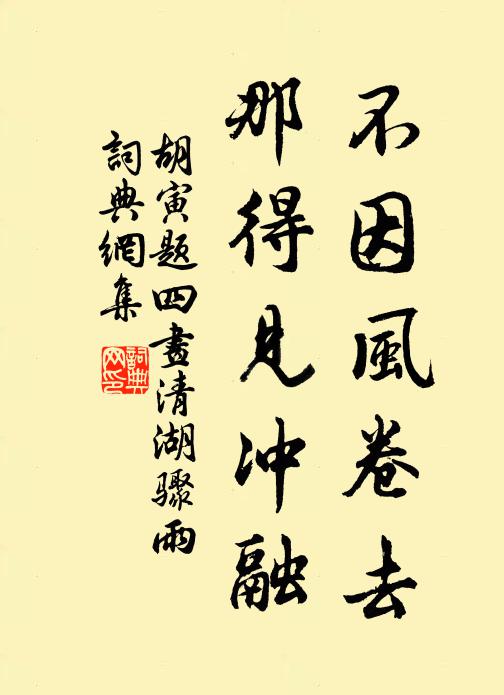 不因風卷去
那得見冲融
胡寅題四畫清湖驟雨
詞典網集
詞典网印